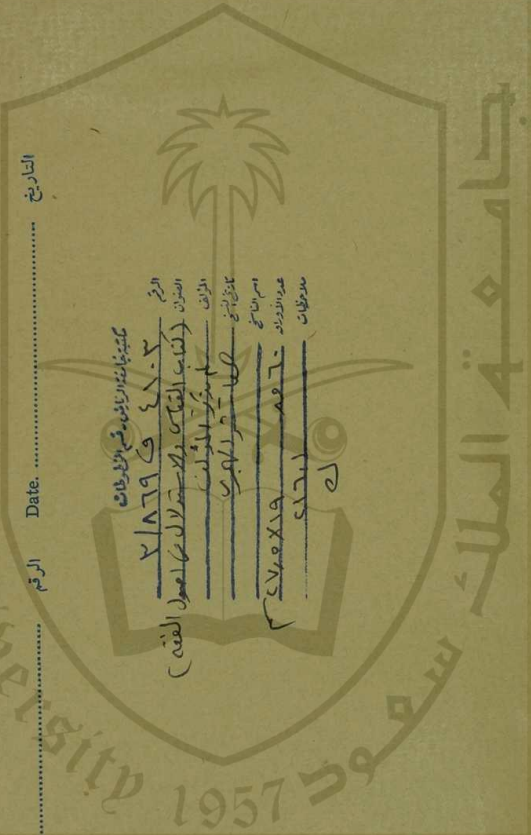 التاريخ
Date.
الرقم
مكتبة جامعة الرياض - قسم المخطوطات
الرقم ٤١٠٣ ف ٢/٨٦٩
العنوان (كتاب القياس والاستدلال من اصول الفقه)
المؤلف لم يذكر المؤلف
تاريخ النسخ الهجري
اسم الناسخ
عدد الأوراق ٦٠
٢٧,٥x١٩
ملاحظات ٢١٦,١
ك
جامعة الملك سعود
ersity 1957